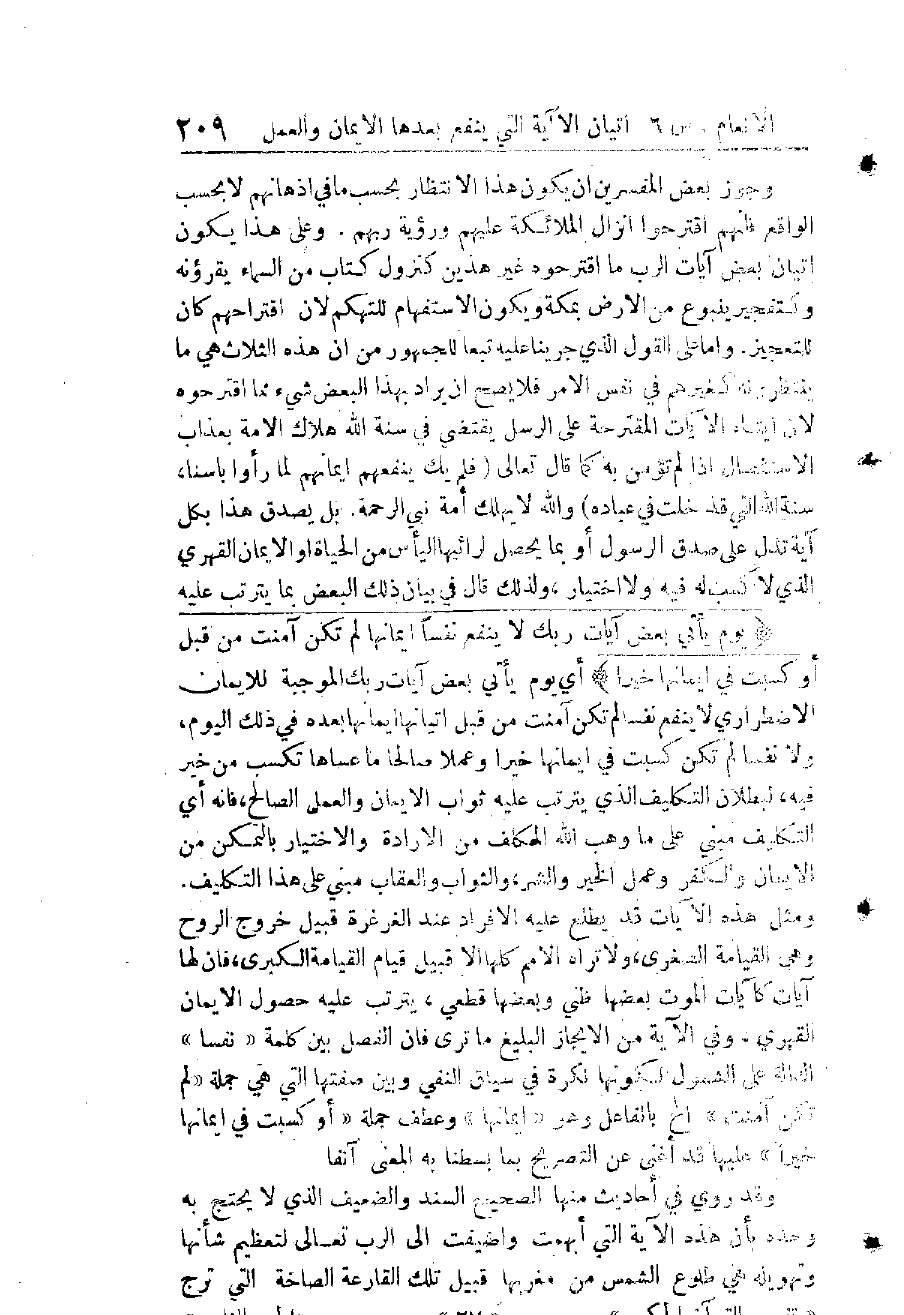 الانعام . س ٦ اتيان الآية التي ينفع بعدها الايمان والعمل ٢٠٩
وجوز بعض المفسرين ان يكون هذا الانتظار بحسب ما في اذهانهم لا بحسب
الواقع فانهم اقترحوا انزال الملائكة عليهم ورؤية ربهم . وعلى هذا يكون
اتيان بعض آيات الرب ما اقترحوه غير هذين كنزول كتاب من السماء يقرؤنه
وكتفجير ينبوع من الارض بمكة ويكون الاستفهام للتهكم لان اقتراحهم كان
للتعجيز . واما على القول الذي جرينا عليه تبعا للجمهور من ان هذه الثلاث هي ما
ينتظرونه كغيرهم في نفس الامر فلا يصح ان يراد بهذا البعض شيء مما اقترحوه
لان ايتاء الآيات المقترحة على الرسل يقتضي في سنة الله هلاك الامة بعذاب
الاستئصال اذا لم تؤمن به كما قال تعالى ( فلم يك ينفعهم ايمانهم لما رأوا باسنا،
سنة الله التي قد خلت في عباده) والله لا يهلك أمة نبي الرحمة. بل يصدق هذا بكل
آية تدل على صدق الرسول أو بما يحصل لرائيها اليأس من الحياة او الايمان القهري
الذي لا كسب له فيه ولا اختيار ، ولذلك قال في بيان ذلك البعض بما يترتب عليه
﴿ يوم يأتي بعض آيات ربك لا ينفع نفساً ايمانها لم تكن آمنت من قبل
أو كسبت في ايمانها خيرا ﴾ أي يوم يأتي بعض آيات ربك الموجبة للايمان
الاضطراري لا ينفع نفسا لم تكن آمنت من قبل اتيانها ايمانها بعده في ذلك اليوم،
ولا نفسا لم تكن كسبت في ايمانها خيرا وعملا صالحا ما عساها تكسب من خير
فيه، لبطلان التكليف الذي يترتب عليه ثواب الايمان والعمل الصالح، فانه أي
التكليف مبني على ما وهب الله المكلف من الارادة والاختيار بالتمكن من
الايمان والكفر وعمل الخير والشر، والثواب والعقاب مبني على هذا التكليف.
ومثل هذه الآيات قد يطلع عليه الافراد عند الغرغرة قبيل خروج الروح
وهي القيامة الصغرى، ولا تراه الامم كلها الا قبيل قيام القيامة الكبرى، فان لها
آيات كآيات الموت بعضها ظني وبعضها قطعي ، يترتب عليه حصول الايمان
القهري . وفي الآية من الايجاز البليغ ما ترى فان الفصل بين كلمة « نفسا »
الدالة على الشمول لكونها نكرة في سياق النفي وبين صفتها التي هي جملة «لم
تكن آمنت » الخ بالفاعل وهو « ايمانها » وعطف جملة « أو كسبت في ايمانها
خيرا » عليها قد أغنى عن التصريح بما بسطنا به المعنى آنفا
وقد روي في أحاديث منها الصحيح السند والضعيف الذي لا يحتج به
وحده بأن هذه الآية التي أبهمت واضيفت الى الرب تعالى لتعظيم شأنها
وتهويله هي طلوع الشمس من مغربها قبيل تلك القارعة الصاخة التي ترج